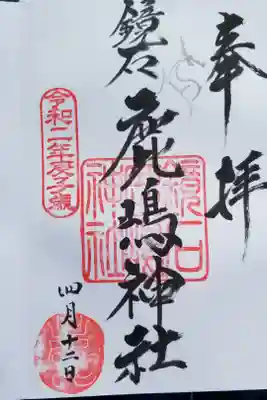 奉拝
鏡石
鹿嶋神社
令和二年庚子歳
四月十二日